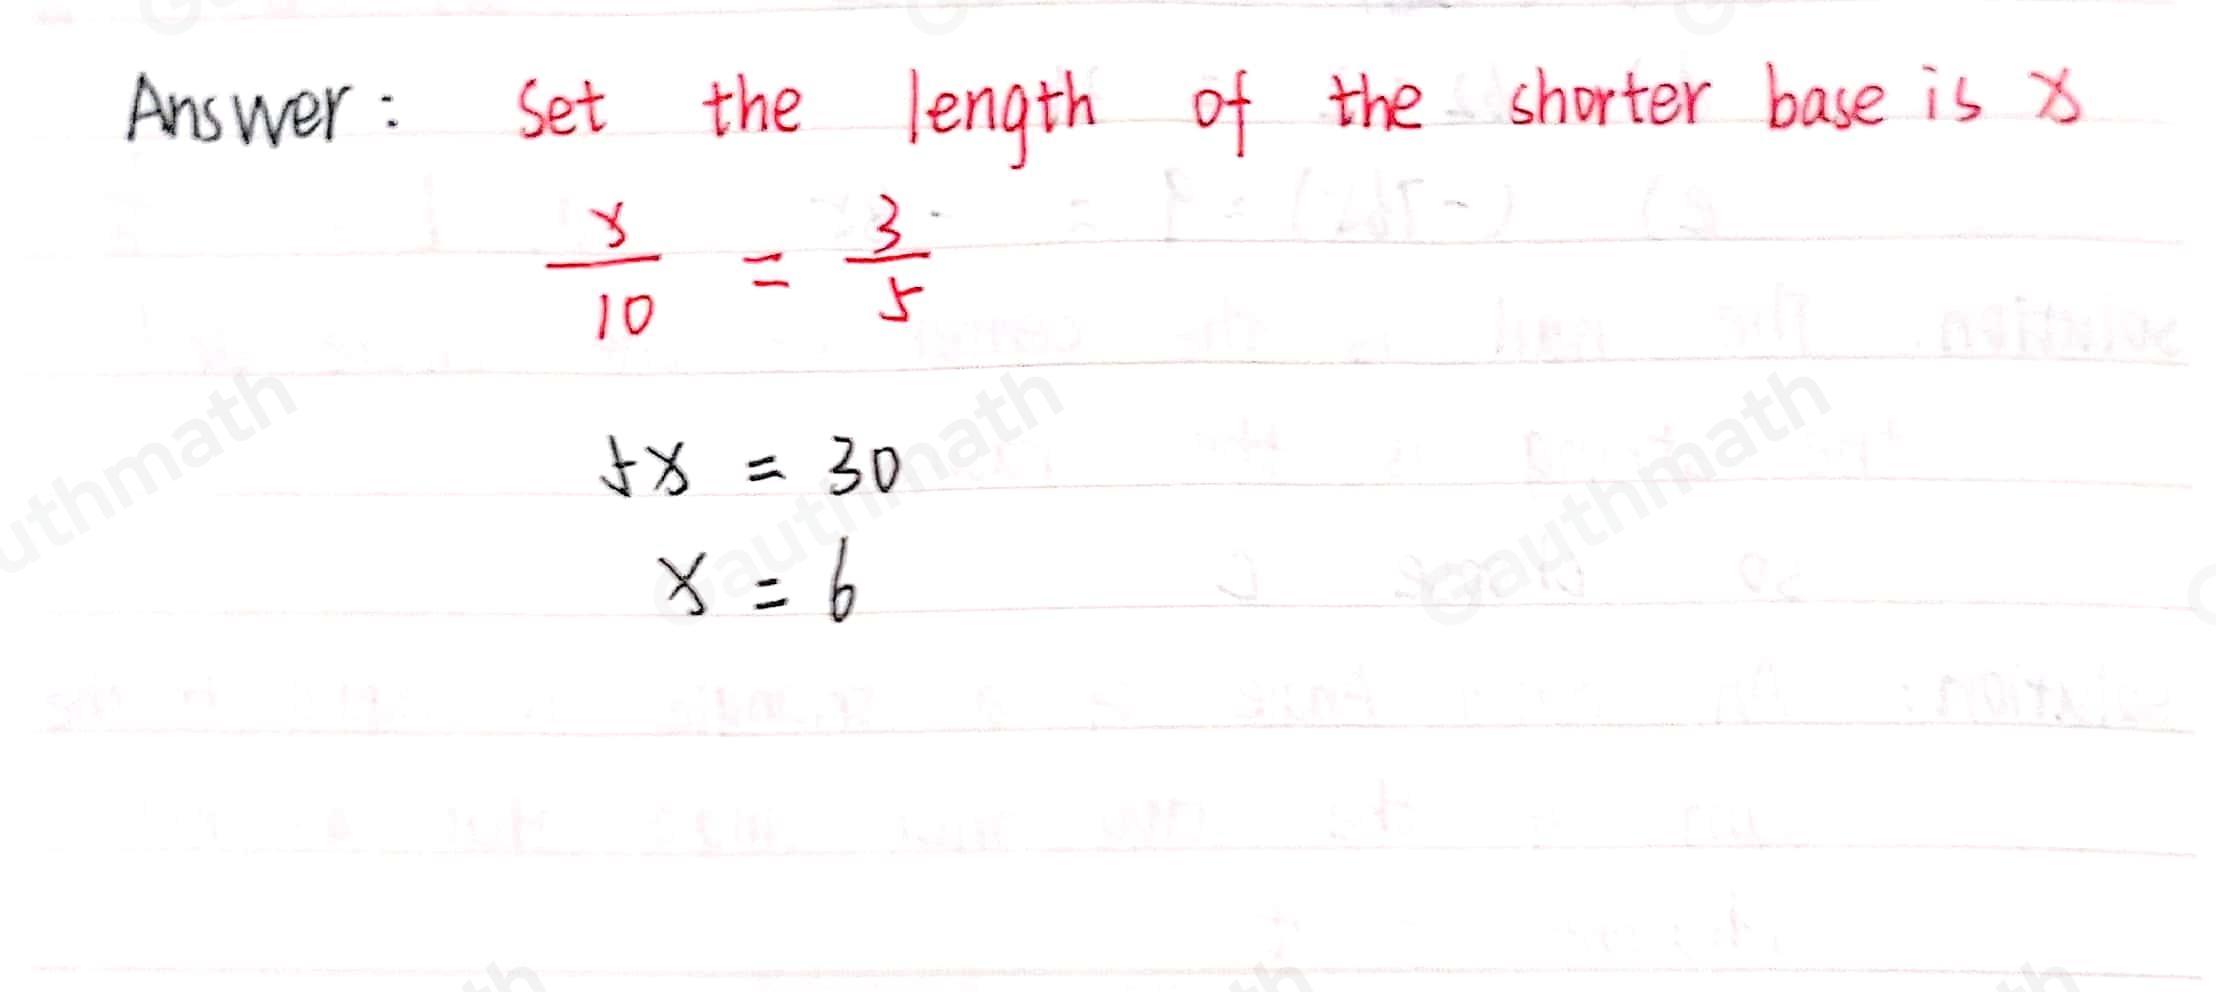 Answer: Set the length of the shorter base is x
x/10 = 3/5
5x = 30
x = 6